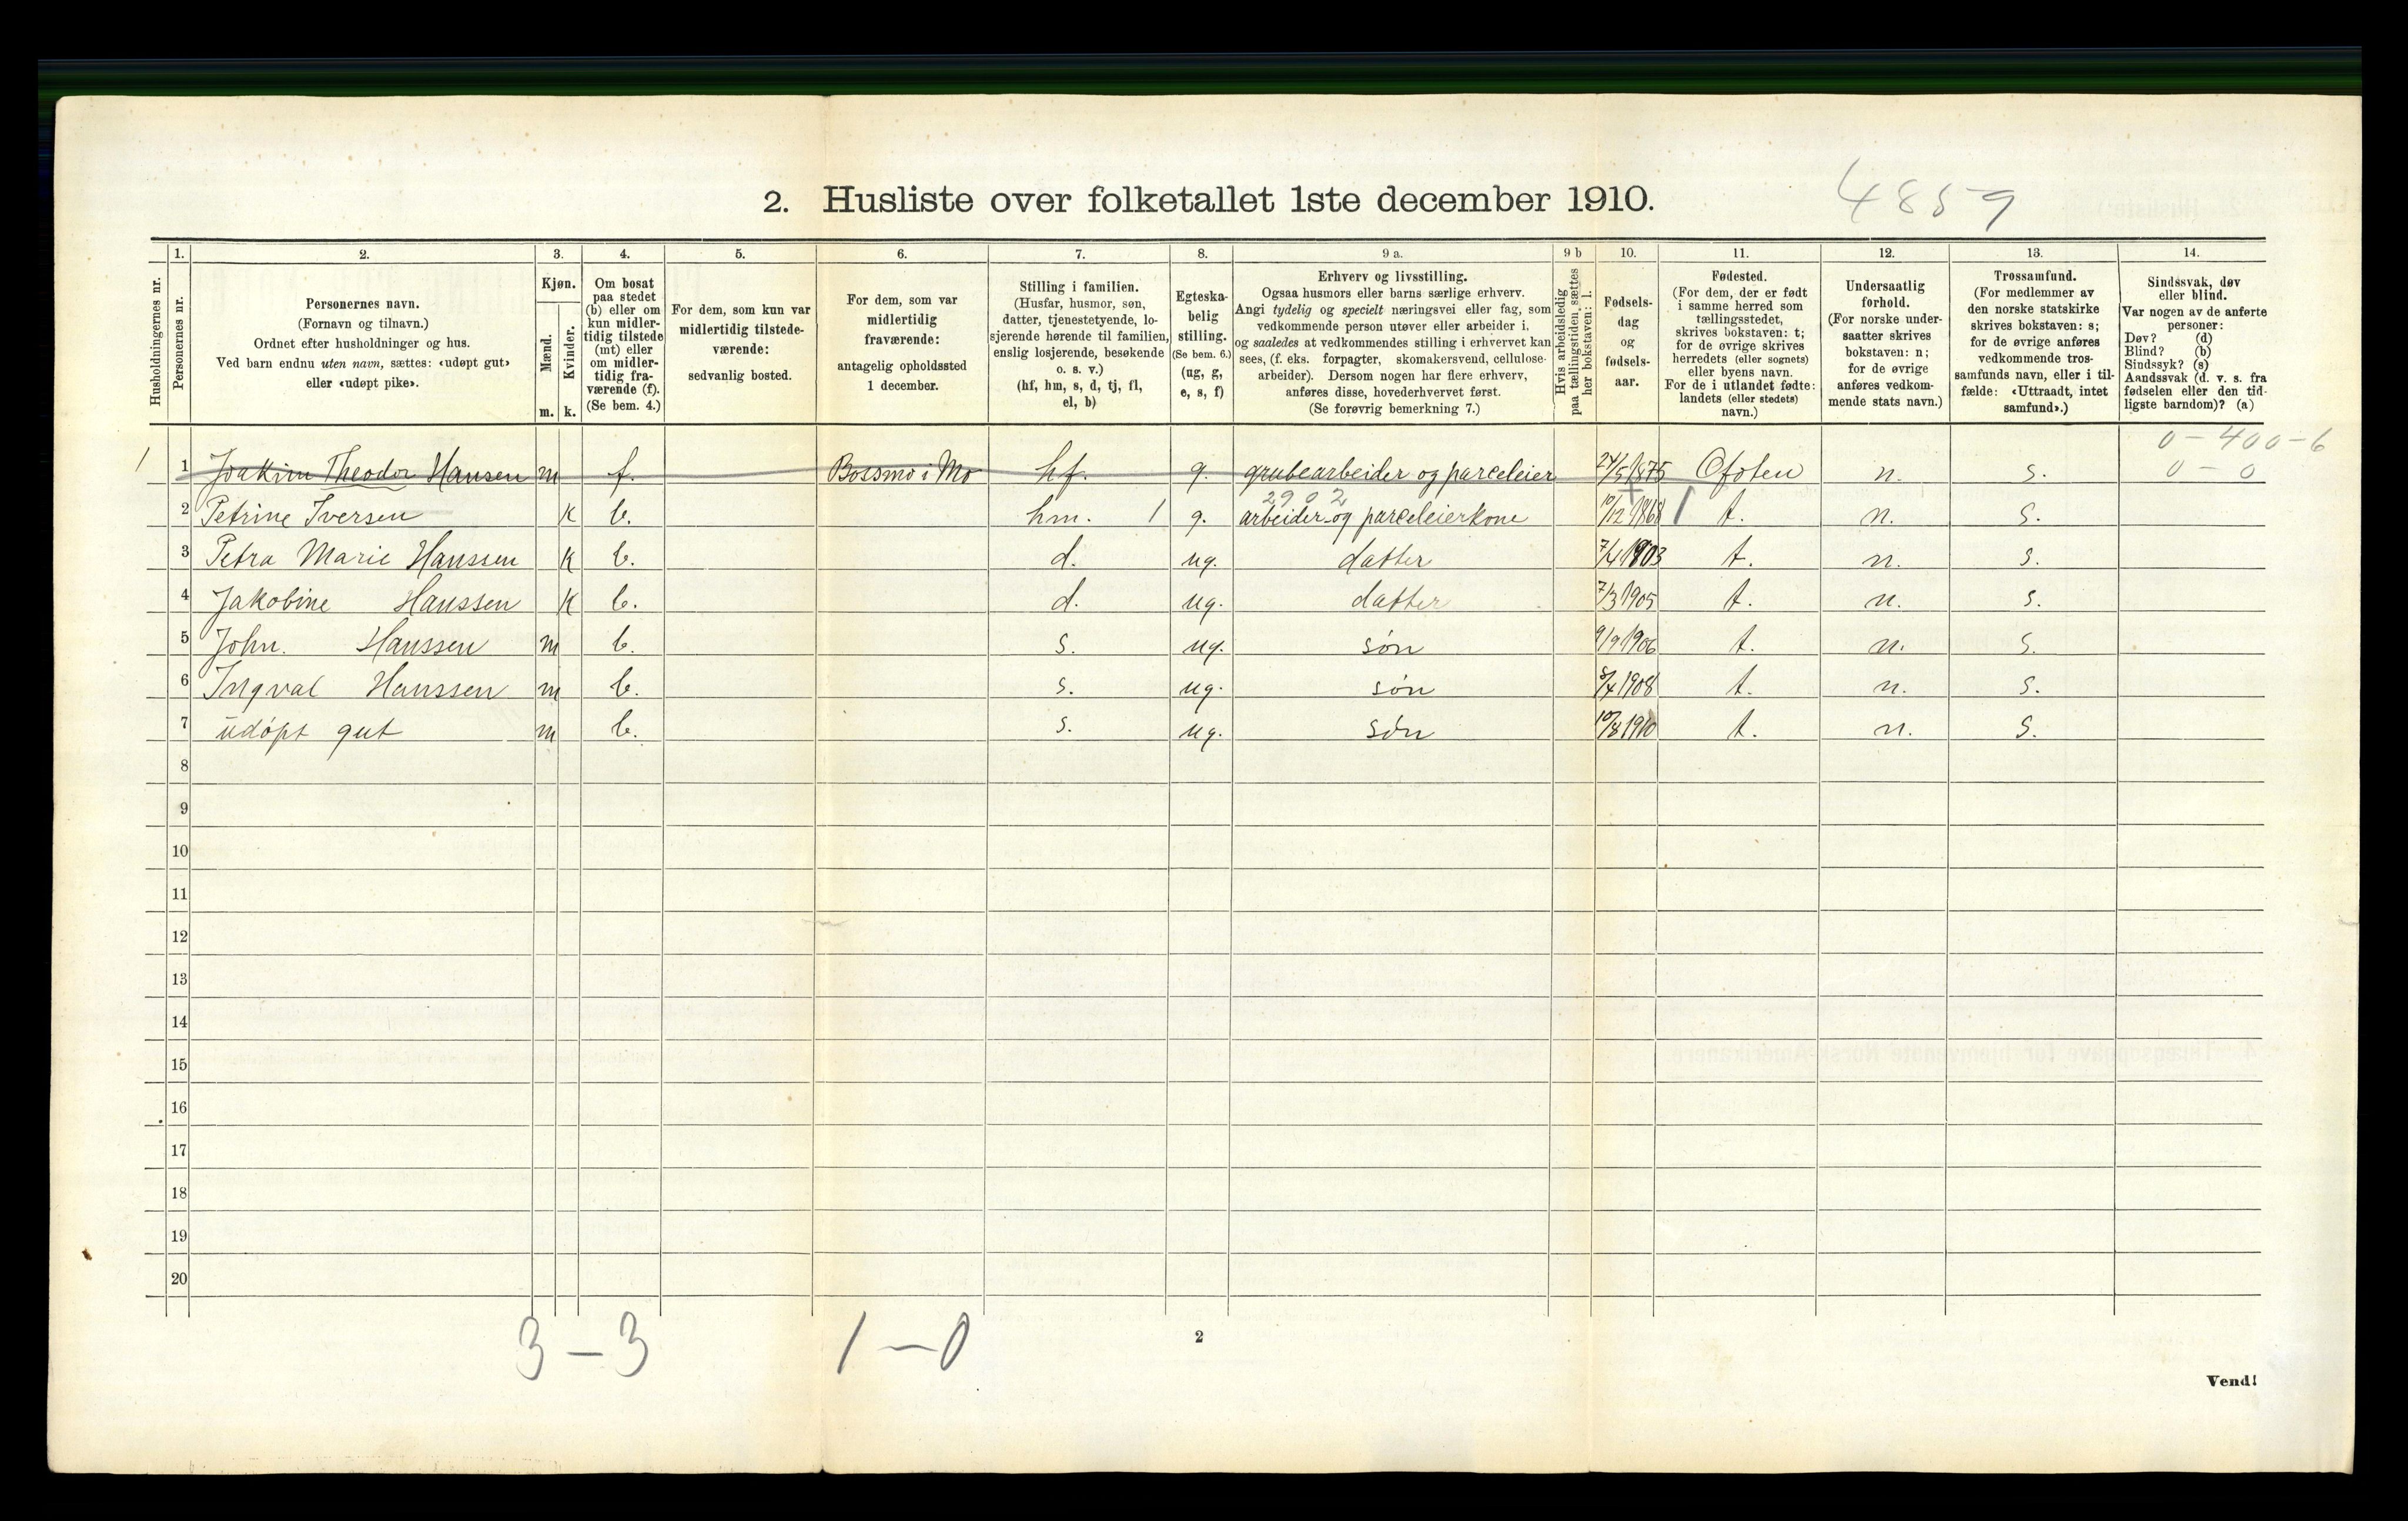 2. Husliste over folketallet 1ste december 1910.
4859
Husholdningernes nr.
1.
Personernes nr.
2.
Personernes navn.
(Fornavn og tilnavn.)
Ordnet efter husholdninger og hus.
Ved barn endnu uten navn, sættes: «udøpt gut»
eller «udøpt pike».
3.
Kjøn.
Mænd.
Kvinder.
m. k.
4.
Om bosat
paa stedet
(b) eller om
kun midler-
tidig tilstede
(mt) eller
om midler-
tidig fra-
værende (f).
(Se bem. 4.)
5.
For dem, som kun var
midlertidig tilstede-
værende:
sedvanlig bosted.
6.
For dem, som var
midlertidig
fraværende:
antagelig opholdssted
1 december.
7.
Stilling i familien.
(Husfar, husmor, søn,
datter, tjenestetyende, lo-
sjerende hørende til familien,
enslig losjerende, besøkende
o. s. v.)
(hf, hm, s, d, tj, fl,
el, b)
8.
Egteska-
belig
stilling.
(Se bem. 6.)
(ug, g,
e, s, f)
9 a.
Erhverv og livsstilling.
Ogsaa husmors eller barns særlige erhverv.
Angi tydelig og specielt næringsvei eller fag, som
vedkommende person utøver eller arbeider i,
og saaledes at vedkommendes stilling i erhvervet kan
sees, (f. eks. forpagter, skomakersvend, cellulose-
arbeider). Dersom nogen har flere erhverv,
anføres disse, hovederhvervet først.
(Se forøvrig bemerkning 7.)
9 b
Hvis arbeidsledig
paa tællingstiden, sættes
her bokstaven: l.
10.
Fødsels-
dag
og
fødsels-
aar.
11.
Fødested.
(For dem, der er født
i samme herred som
tællingsstedet,
skrives bokstaven: t;
for de øvrige skrives
herredets (eller sognets)
eller byens navn.
For de i utlandet fødte:
landets (eller stedets)
navn.)
12.
Undersaatlig
forhold.
(For norske under-
saatter skrives
bokstaven: n;
for de øvrige
anføres vedkom-
mende stats navn.)
13.
Trossamfund.
(For medlemmer av
den norske statskirke
skrives bokstaven: s;
for de øvrige anføres
vedkommende tros-
samfunds navn, eller i til-
fælde: «Uttraadt, intet
samfund».)
14.
Sindssvak, døv
eller blind.
Var nogen av de anførte
personer:
Døv? (d)
Blind? (b)
Sindssyk? (s)
Aandssvak (d. v. s. fra
fødselen eller den tid-
ligste barndom)? (a)
0 - 400 - 6
1 1 Joakim Theodor Hansen m f. Bossmo i Mo hf. g. grubearbeider og parceleier 24/5 1875 Ofoten n. s. 0 - 0
2902
2 Petrine Iversen k b. hm. 1 g. arbeider og parceleierkone 10/12 1868 1 t. n. s.
3 Petra Marie Hanssen k b. d. ug. datter 7/4 1903 t. n. s.
4 Jakobine Hanssen k b. d. ug. datter 7/3 1905 t. n. s.
5 John. Hanssen m b. s. ug. søn 9/9 1906 t. n. s.
6 Ingval Hanssen m b. s. ug. søn 1908 t. n. s.
7 udøpt gut m b. s. ug. søn 10/8 1910 t. n. s.
8
9
10
11
12
13
14
15
16
17
18
19
20
3 - 3 1 - 0
2
Vend!